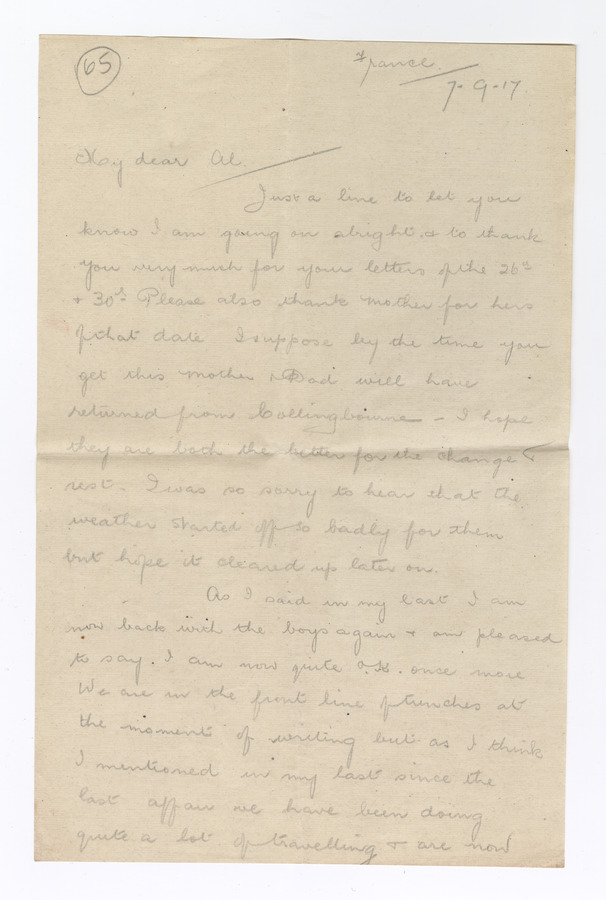 65
France.
7-9-17.
My dear Al.
Just a line to let you
know I am going on alright, & to thank
you very much for your letters of the 26th
& 30th. Please also thank Mother for hers
of that date. I suppose by the time you
get this Mother & Dad will have
returned from Collingbourne - I hope
they are both the better for the change &
rest. I was so sorry to hear that the
weather started off so badly for them
but hope it cleared up later on.
As I said in my last I am
now back with the boys again & am pleased
to say. I am now quite O.K. once more
We are in the front line trenches at
the moment of writing but as I think
I mentioned in my last since the
last affair we have been doing
quite a lot of travelling & are now